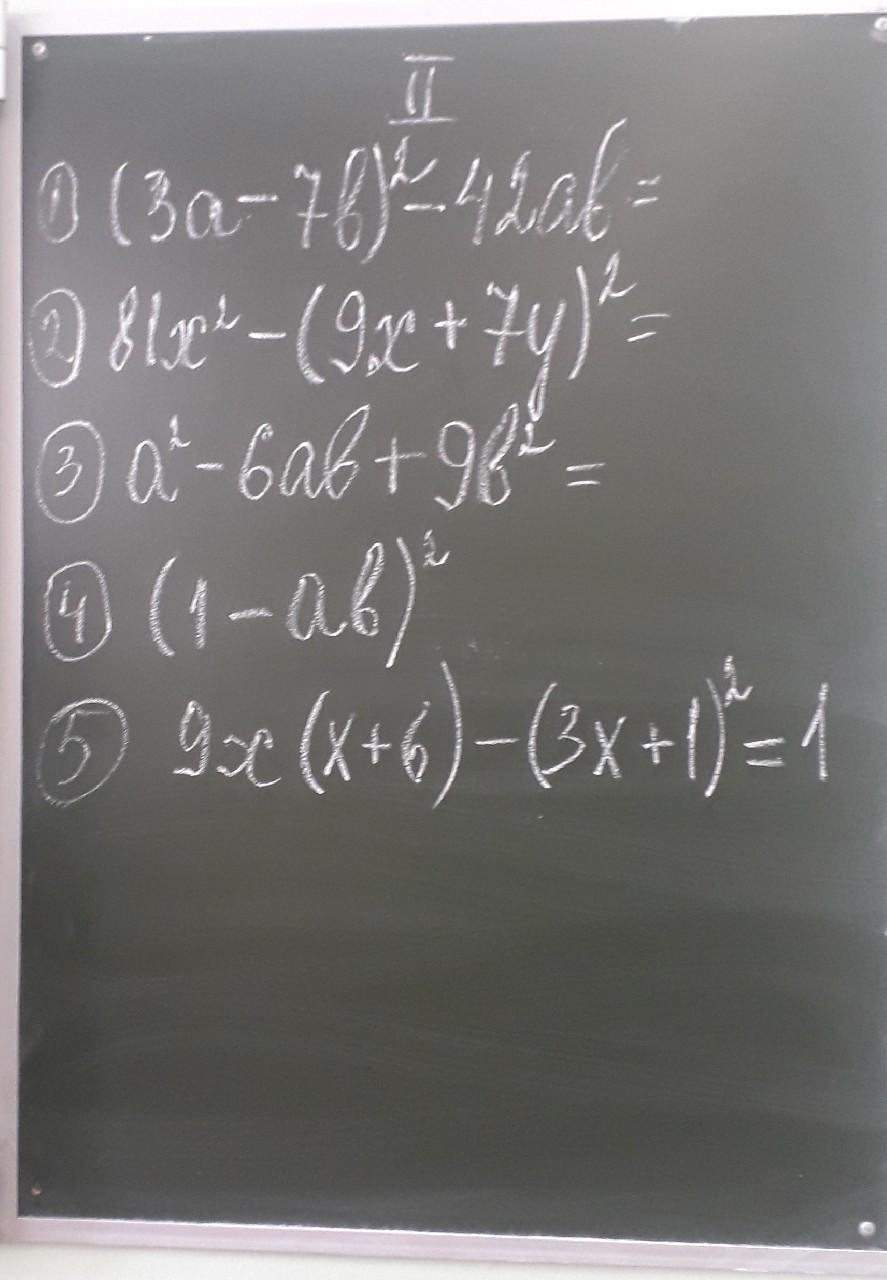 II
① (3a-7b)²-42ab=
② 81x²-(9x+7y)²=
③ a²-6ab+9b²=
④ (1-ab)²
⑤ 9x(x+6)-(3x+1)²=1